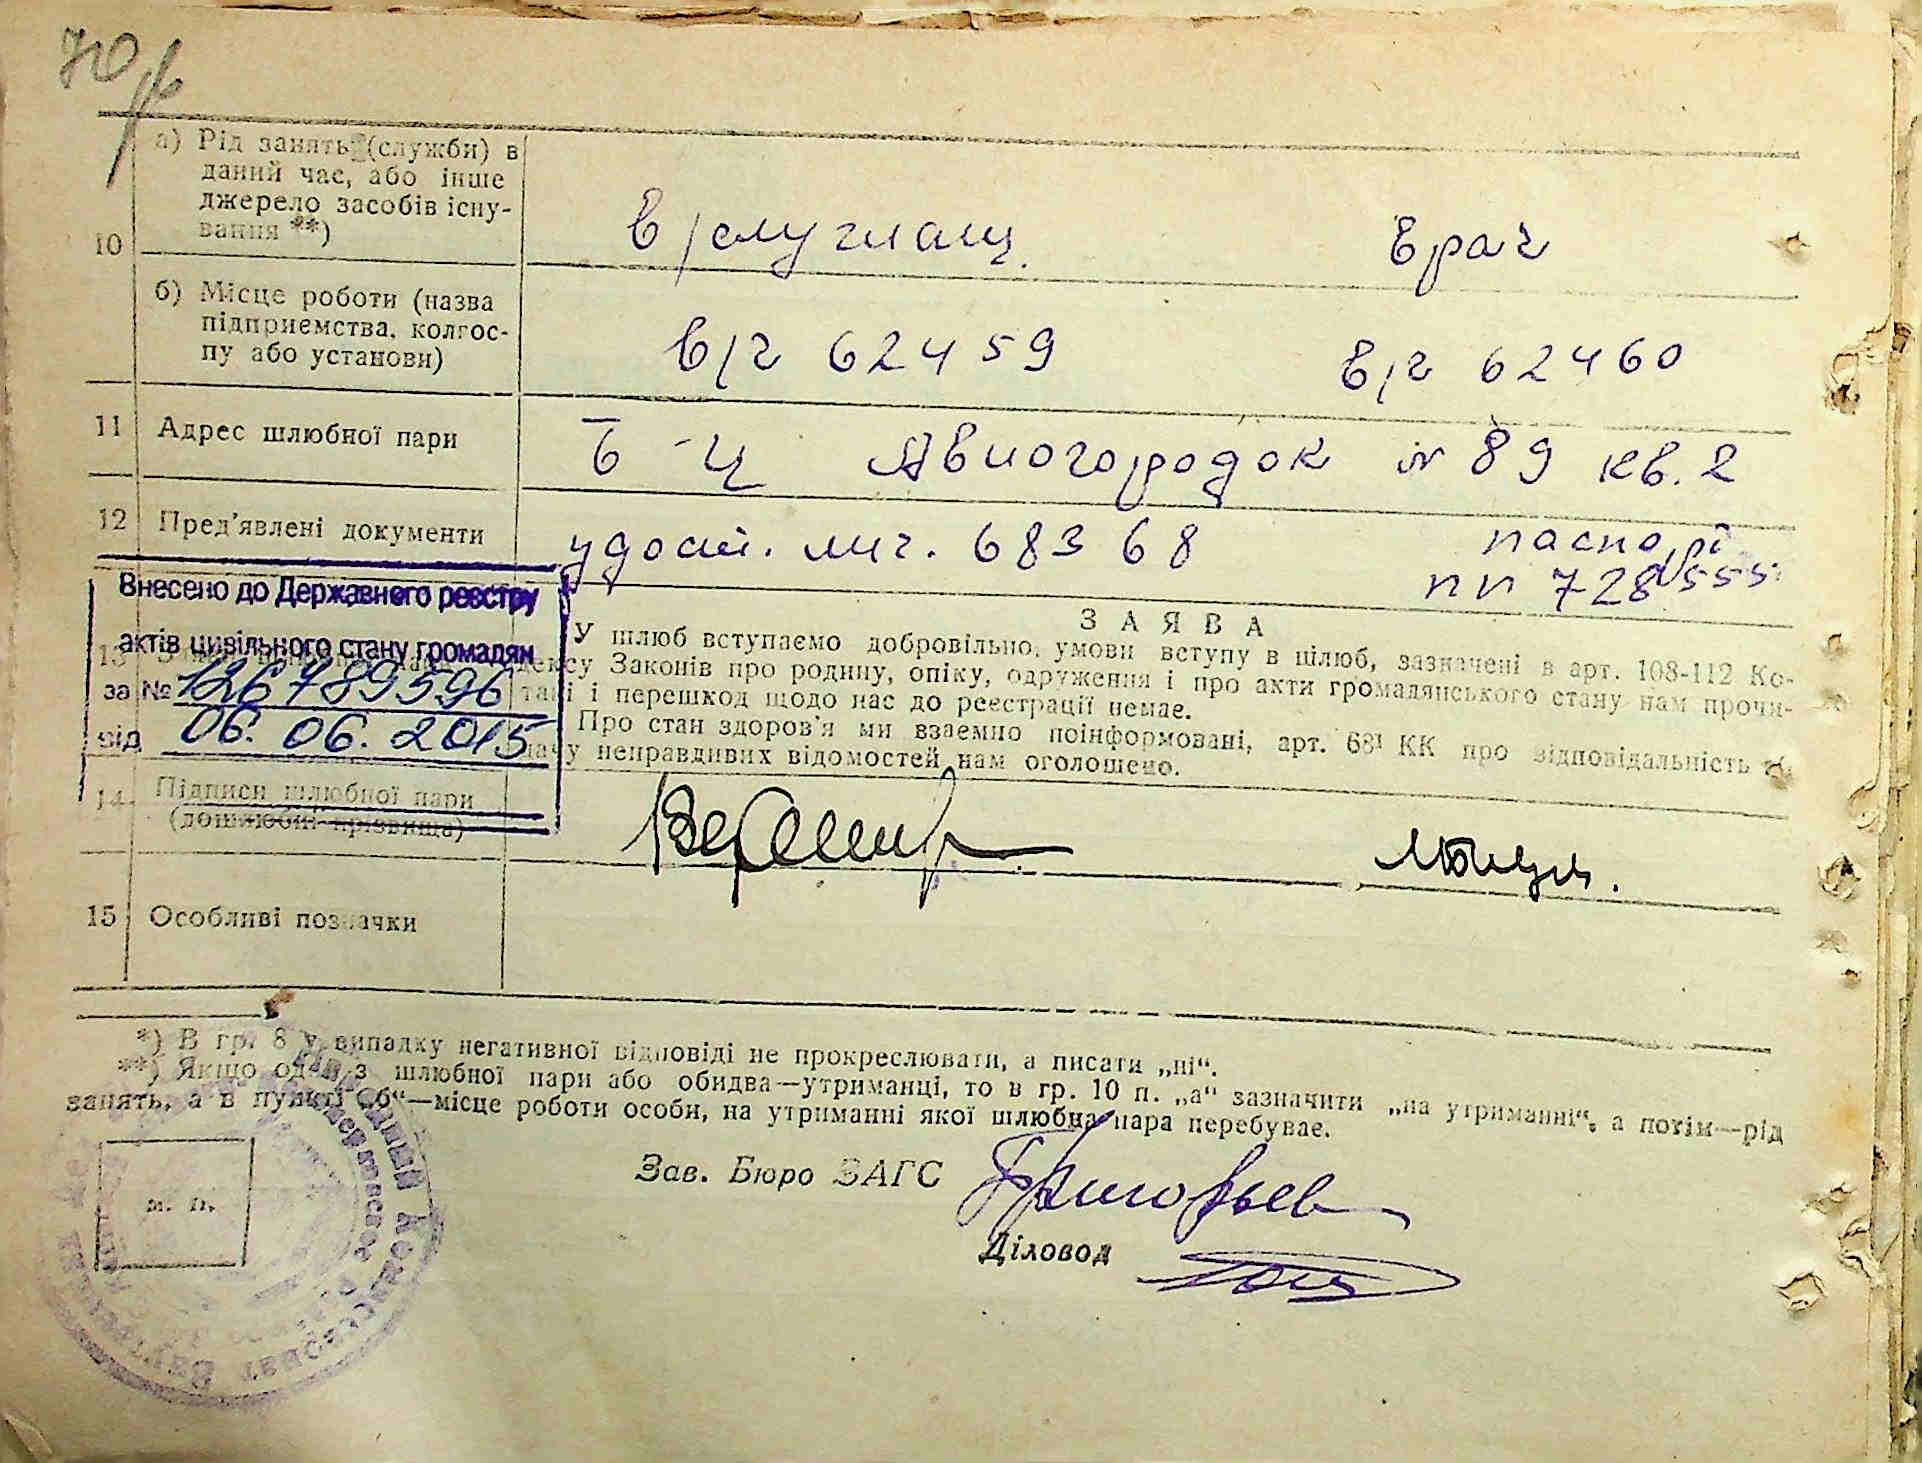 70
10
а) Рід занять (служби) в
даний час, або інше
джерело засобів існу-
вання **)
в/служащ.
врач
б) Місце роботи (назва
підприємства, колгос-
пу або установи)
в/ч 62459
в/ч 62460
11
Адрес шлюбної пари
Б-Ц Авиогородок № 89 кв. 2
12
Пред'явлені документи
удост. лич. 68368
паспорт
пп 728555
Внесено до Державного реєстру
актів цивільного стану громадян
за № 126789596
від 06.06.2015
13
ЗАЯВА
У шлюб вступаємо добровільно, умови вступу в шлюб, зазначені в арт. 108-112 Ко-
дексу Законів про родину, опіку, одруження і про акти громадянського стану нам прочи-
тані і перешкод щодо нас до реєстрації немає.
Про стан здоров'я ми взаємно поінформовані, арт. 68¹ КК про відповідальність
дачу неправдивих відомостей нам оголошено.
14
Підписи шлюбної пари
(дошлюбні прізвища)
15
Особливі позначки
*) В гр. 8 у випадку негативної відповіді не прокреслювати, а писати „ні“.
**) Якщо один з шлюбної пари або обидва—утриманці, то в гр. 10 п. „а“ зазначити „на утриманні“, а потім—рід
занять, а в пункті „б“—місце роботи особи, на утриманні якої шлюбна пара перебуває.
м. п.
Зав. Бюро ЗАГС Григорьев
Діловод